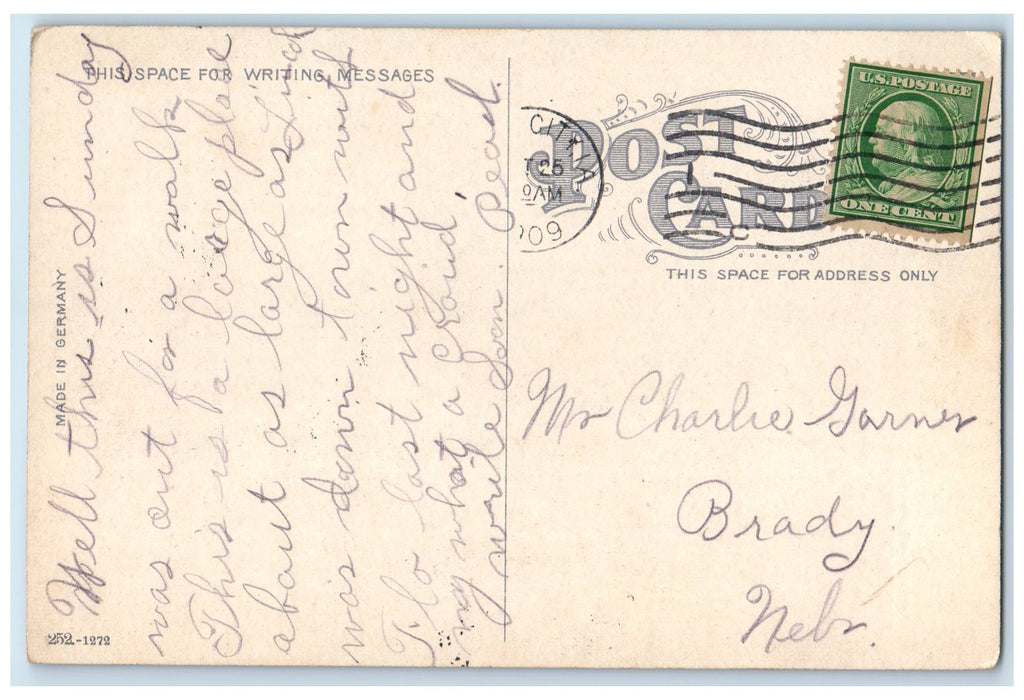 THIS SPACE FOR WRITING MESSAGES
Well this is Sunday
was out for a walk
This is a large place
about as large as
was down town with
Flo last night and
my what a
write soon. Pearl.
MADE IN GERMANY
252.-1272
CITY, IA.
25
AM
09
POST
CARD
U.S. POSTAGE
ONE CENT
THIS SPACE FOR ADDRESS ONLY
Mr Charlie Garner
Brady
Nebr.